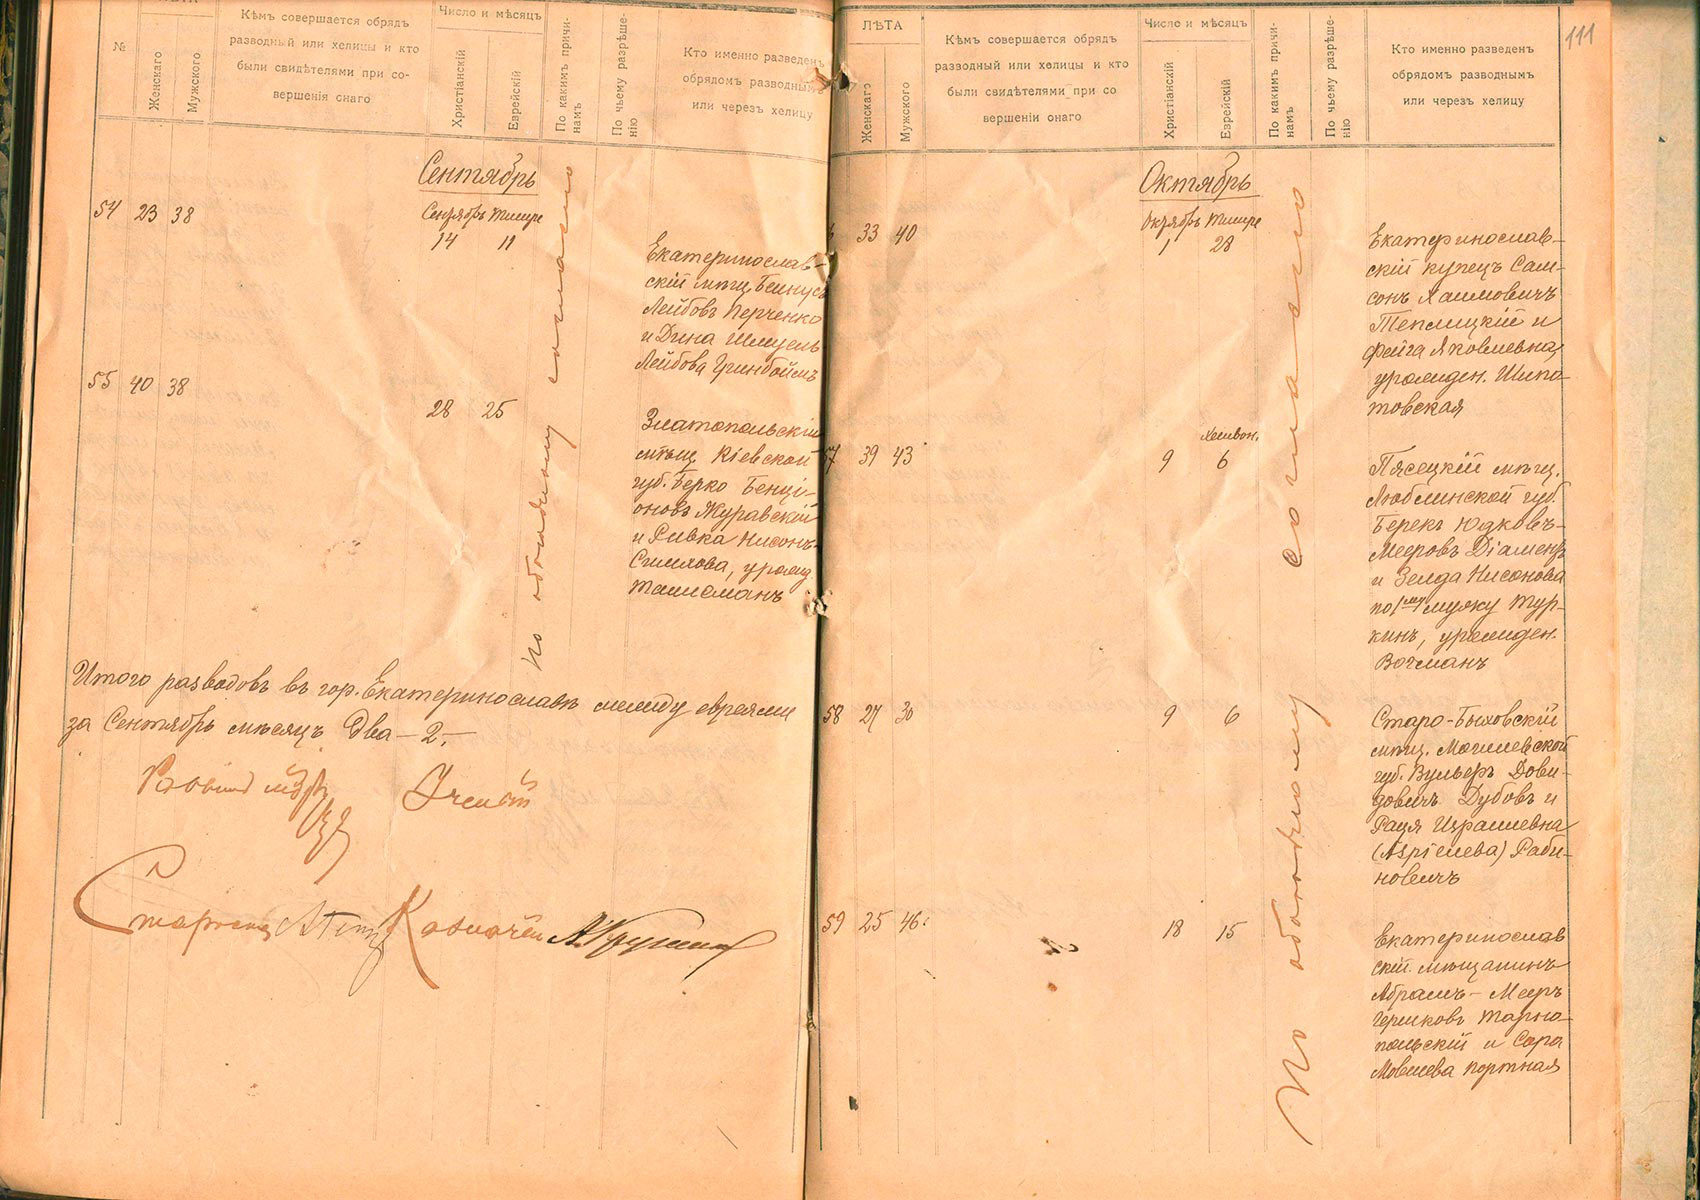 ЛѢТА
№
Женскаго
Мужского
Кѣмъ совершается обрядъ
разводный или хелицы и кто
были свидѣтелями при со-
вершенія онаго
Число и мѣсяцъ
Христіанскій
Еврейскій
По какимъ причи-
намъ
По чьему разрѣше-
нію
Кто именно разведенъ
обрядомъ разводнымъ
или черезъ хелицу
Сентябрь
Сентябрь Тишре
54 23 38
14 11
Екатеринослав-
скій мѣщ. Бейнусъ
Лейбовъ Перченко
и Дина Шмуель
Лейбова Гринбоймъ
55 40 38
28 25
Златопольскій
мѣщ. Кіевской
губ. Берко Бенці-
оновъ Журавскій
и Ривка Нисонъ-
Симхова, урожд.
Талисманъ
По обоюдному согласію
Итого разводовъ въ гор. Екатеринославѣ между евреями
за Сентябрь мѣсяцъ Два — 2.—
Ученый
Староста
Казначей
111
ЛѢТА
Женскаго
Мужского
Кѣмъ совершается обрядъ
разводный или хелицы и кто
были свидѣтелями при со
вершеніи онаго
Число и мѣсяцъ
Христіанскій
Еврейскій
По какимъ причи-
намъ
По чьему разрѣше-
нію
Кто именно разведенъ
обрядомъ разводнымъ
или черезъ хелицу
Октябрь
Октябрь Тишре
33 40
1 28
Екатеринослав-
скій купецъ Сам-
сонъ Хаимовичъ
Теплицкій и
Фейга Яковлевна,
урожден. Шипо-
товская
Хешвон.
57 39 43
9 6
Пясецкій мѣщ.
Люблинской губ.
Берекъ Юдковъ-
Мееровъ Діаментъ
и Зелда Нисонова
по 1му мужу Тур-
кинъ, урожден.
Вогманъ
58 27 30
9 6
Старо-Быховскій
мѣщ. Могилевской
губ. Вульфъ Дови-
довичъ Дубовъ и
Рася Израилевна
(Азріелева) Раби-
новичъ
59 25 46
18 15
Екатеринослав
скій мѣщанинъ
Абрамъ-Мееръ
Гершковъ Тарно-
польскій и Сора
Мовшева Портная
По обоюдному согласію